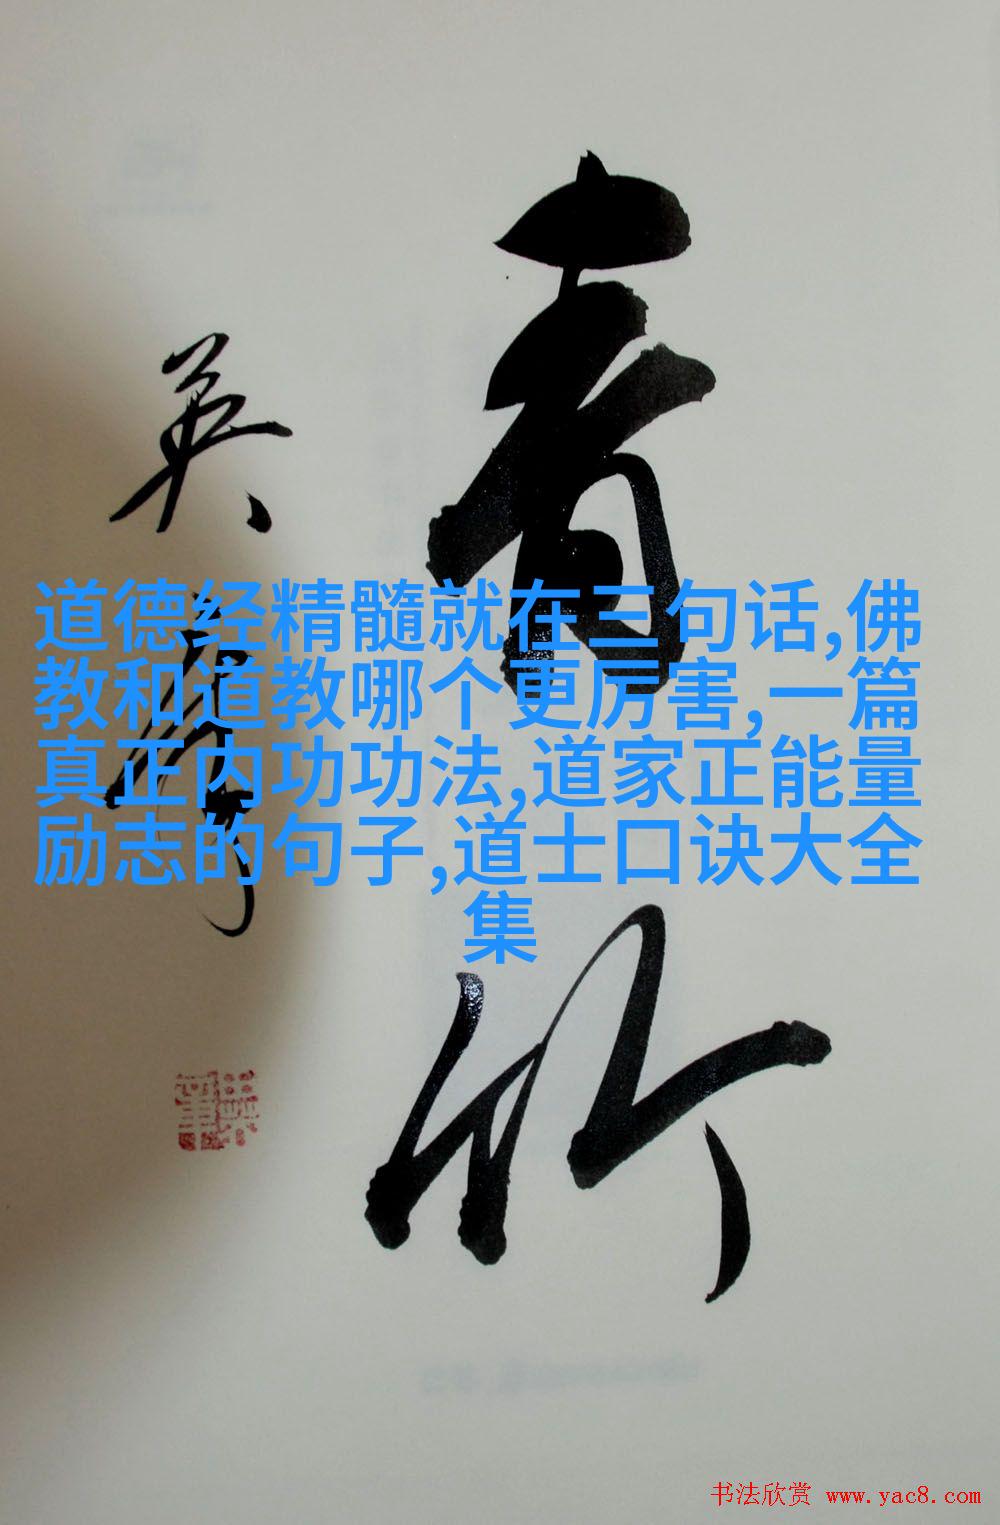 青竹
英
道德经精髓就在三句话,佛
教和道教哪个更厉害,一篇
真正内功功法,道家正能量
励志的句子,道士口诀大全
集
书法欣赏 www.yac8.com